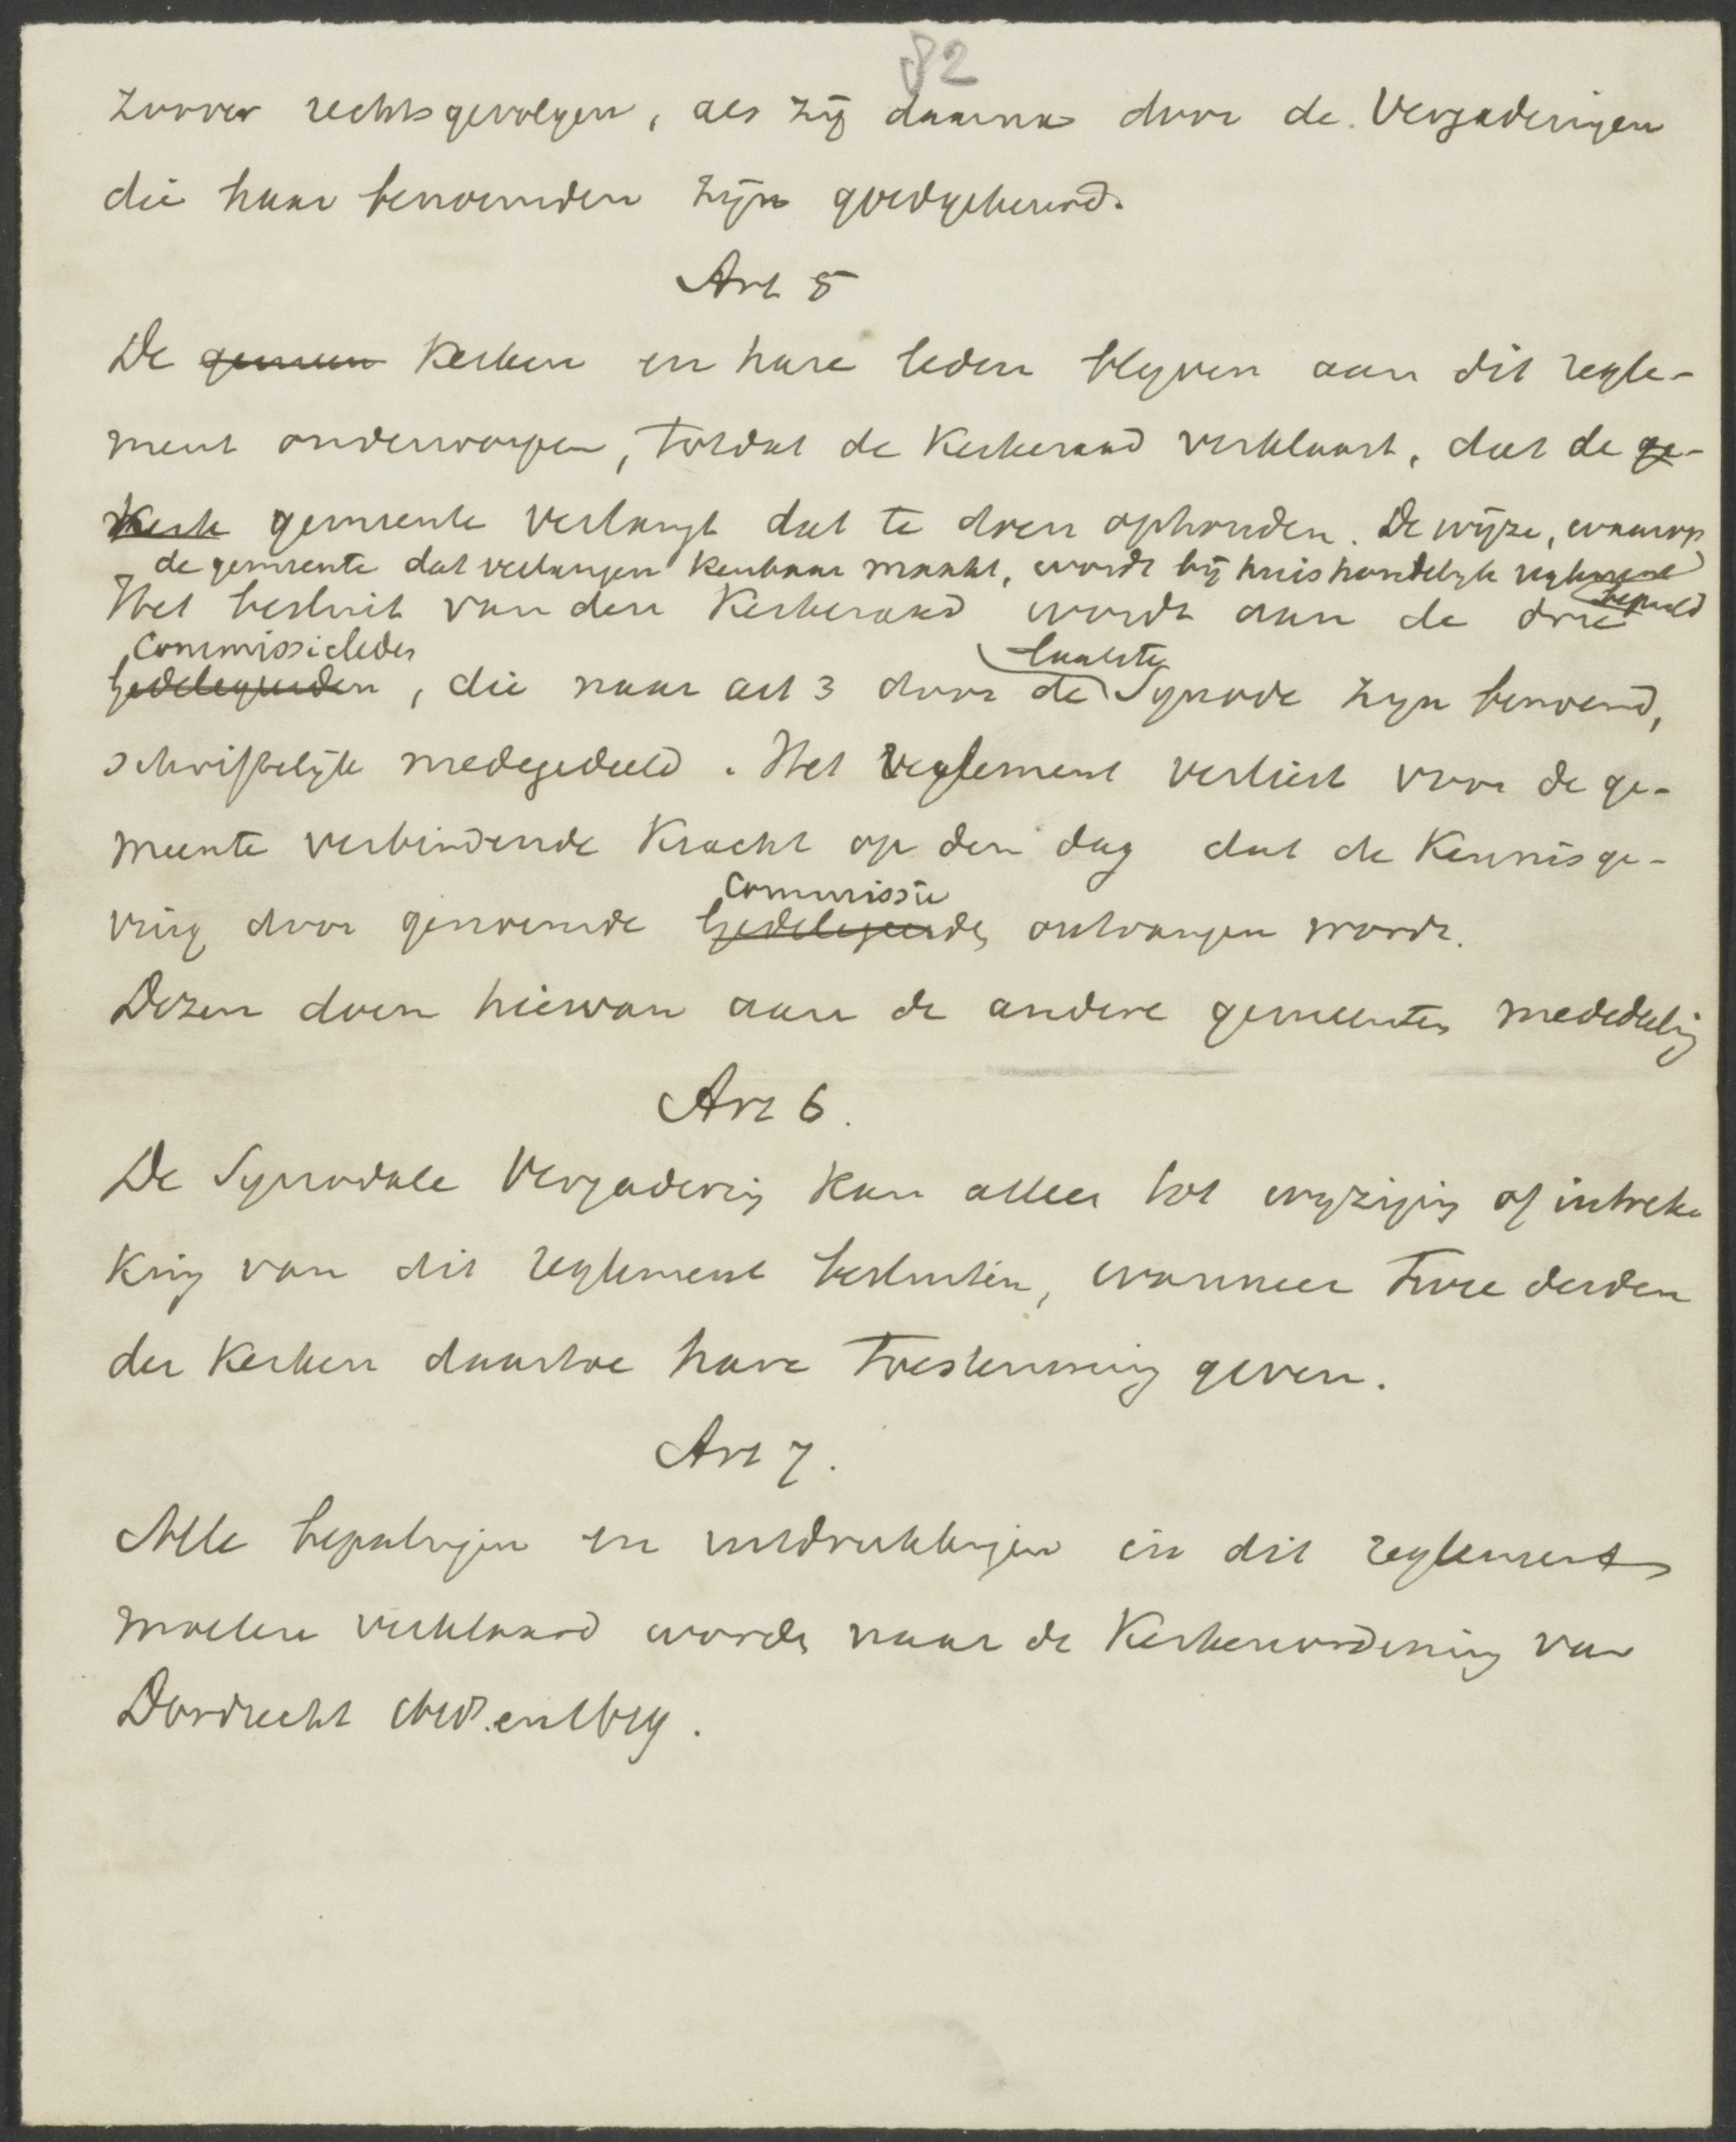 82
zoover rechtsgevolgen, als zij daarna door de Vergaderingen
die haar benoemden zijn goedgekeurd.
Art 5
De gemeen Kerken en hare leden blyven aan dit regle-
ment onderworpen, totdat de Kerkeraad verklaart, dat de ge-
Kerk gemeente verlangt dat te doen ophouden. De wijze, waarop
de gemeente dat verlangen kenbaar maakt, wordt bij huishoudelyk reglement
bepaald
Het besluit van den Kerkeraad wordt aan de drie
Commissieleden
Gedelegeerden, die naar art 3 door de Synode zyn benoemd,
laatste
schriftelijk medegedeeld. Het reglement verliest voor de ge-
meente verbindende Kracht op den dag dat de Kennisge-
Commissie
ving door genoemde Gedelegeerden ontvangen wordt.
Dezen doen hiervan aan de andere gemeenten mededeling
Art 6.
De Synodale Vergadering kan alleen tot wyziging of intrek-
king van dit reglement besluiten, wanneer twee derden
der Kerken daartoe hare toestemming geven.
Art 7.
Alle bepalingen en uitdrukkingen in dit reglement
moeten verklaard worden naar de Kerkenordening van
Dordrecht